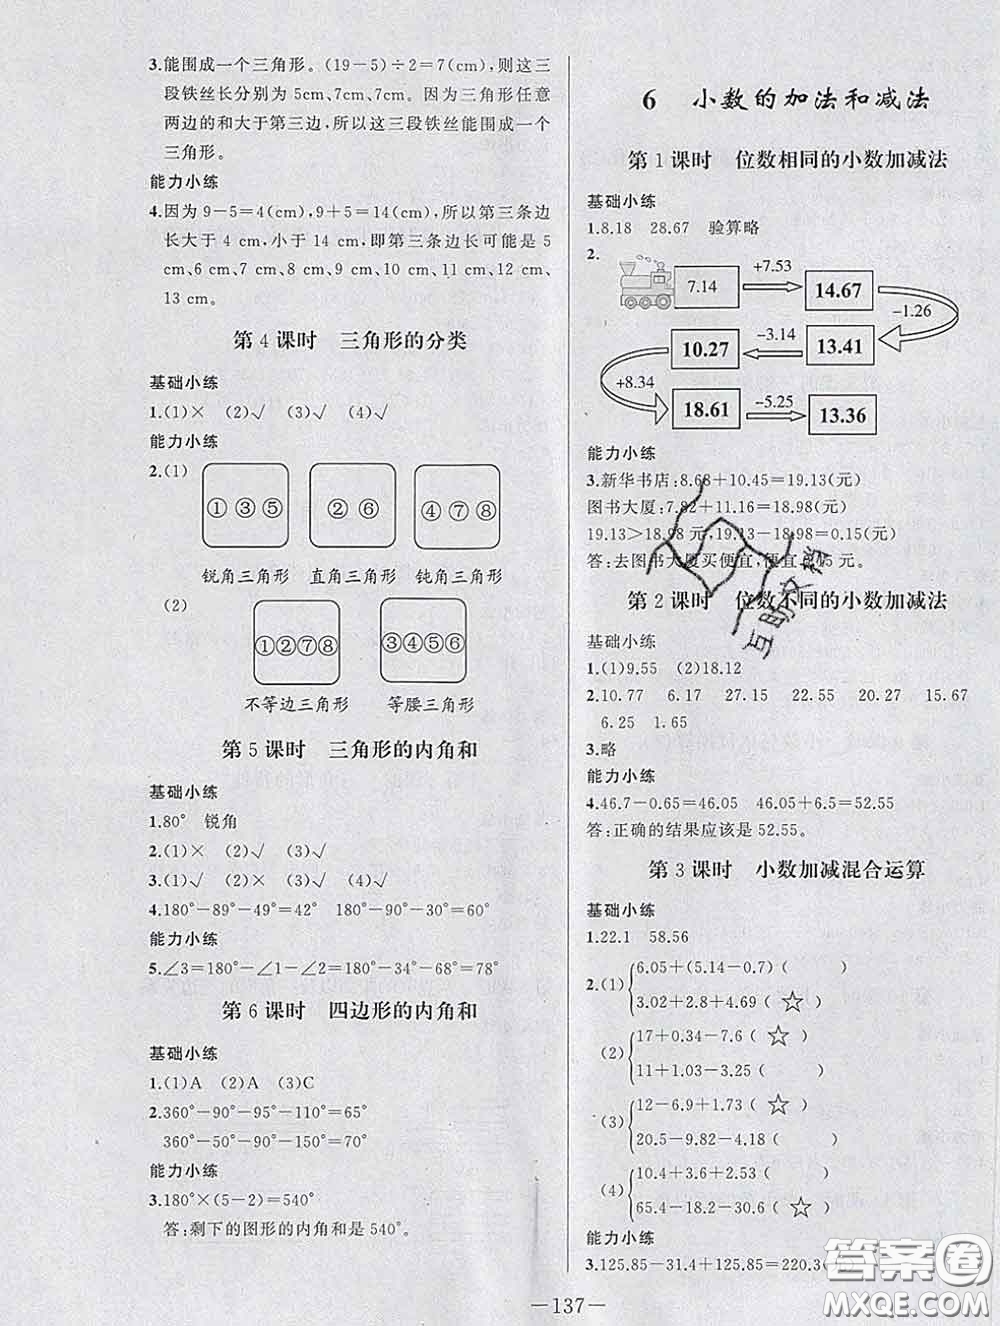 3.能围成一个三角形。(19-5)÷2=7(cm),则这三
段铁丝长分别为5cm、7cm、7cm。因为三角形任意
两边的和大于第三边,所以这三段铁丝能围成一个
三角形。
能力小练
4.因为9-5=4(cm),9+5=14(cm),所以第三条边
长大于4 cm,小于14 cm,即第三条边长可能是5
cm、6 cm、7 cm、8 cm、9 cm、10 cm、11 cm、12 cm、
13 cm。
第4课时 三角形的分类
基础小练
1.(1)× (2)√ (3)√ (4)√
能力小练
2.(1)
①③⑤ ②⑥ ④⑦⑧
锐角三角形 直角三角形 钝角三角形
(2)
①②⑦⑧ ③④⑤⑥
不等边三角形 等腰三角形
第5课时 三角形的内角和
基础小练
1.80° 锐角
2.(1)× (2)√ (3)√
3.(1)× (2)√ (3)√ (4)√
4.180°-89°-49°=42° 180°-90°-30°=60°
能力小练
5.∠3=180°-∠1-∠2=180°-34°-68°=78°
第6课时 四边形的内角和
基础小练
1.(1)A (2)A (3)C
2.360°-90°-95°-110°=65°
360°-50°-90°-150°=70°
能力小练
3.180°×(5-2)=540°
答:剩下的图形的内角和是540°。
6 小数的加法和减法
第1课时 位数相同的小数加减法
基础小练
1.8.18 28.67 验算略
2.
7.14 +7.53 14.67
-1.26
10.27 -3.14 13.41
+8.34
18.61 -5.25 13.36
能力小练
3.新华书店:8.68+10.45=19.13(元)
图书大厦:7.82+11.16=18.98(元)
19.13>18.98元,19.13-18.98=0.15(元)
答:去图书大厦买便宜,便宜0.15元。
第2课时 位数不同的小数加减法
基础小练
1.(1)9.55 (2)18.12
2.10.77 6.17 27.15 22.55 20.27 15.67
6.25 1.65
3.略
能力小练
4.46.7-0.65=46.05 46.05+6.5=52.55
答:正确的结果应该是52.55。
第3课时 小数加减混合运算
基础小练
1.22.1 58.56
2.(1) 6.05+(5.14-0.7)( )
3.02+2.8+4.69(☆)
(2) 17+0.34-7.6(☆)
11+1.03-3.25( )
(3) 12-6.9+1.73(☆)
20.5-9.82-4.18( )
(4) 10.4+3.6+2.53( )
65.4-18.2-30.6(☆)
能力小练
3.125.85-31.4+125.85=220.3(
—137—
互助文档
答案圈
MXQE.COM